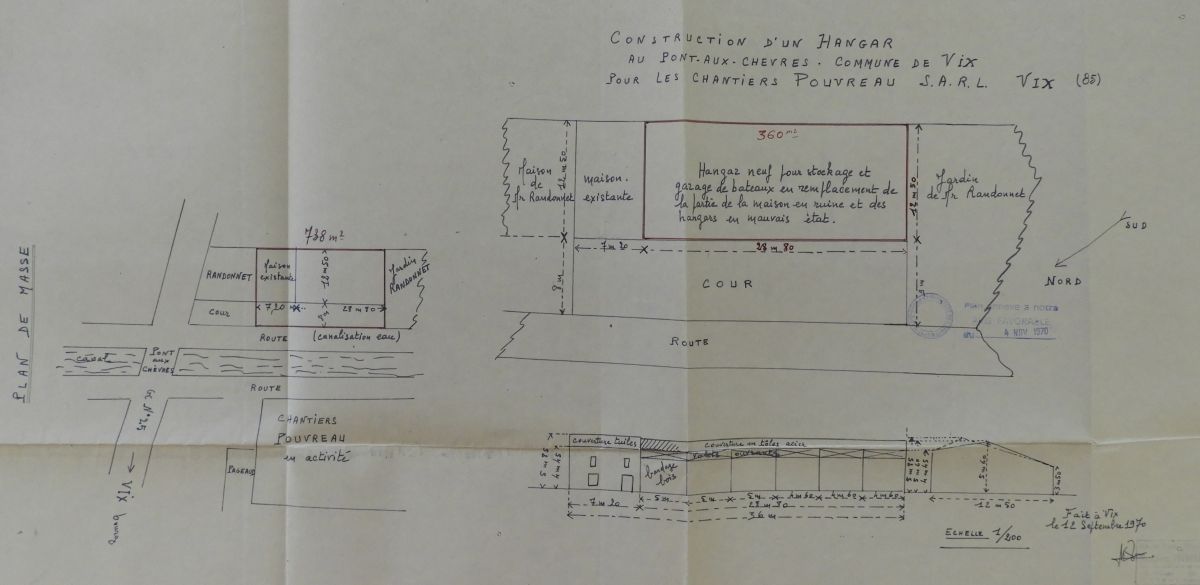 CONSTRUCTION D'UN HANGAR
AU PONT-AUX-CHEVRES. COMMUNE DE VIX
POUR LES CHANTIERS POUVREAU S.A.R.L. VIX (85)
360 m²
Maison
de
Mr Randonnet
12 m 50
maison.
existante
Hangar neuf pour stockage et
garage de bateaux en remplacement de
la partie de la maison en ruine et des
hangars en mauvais état.
Jardin
de Mr Randonnet
7 m 20
28 m 80
8 m
COUR
ROUTE
SUD
NORD
AVIS FAVORABLE
4 NOV 1970
PLAN DE MASSE
738 m²
RANDONNET
Maison
existante
12 m 50
Jardin
RANDONNET
COUR
7,20
8 m
28 m 80
ROUTE (canalisation eau)
canal
PONT
aux
CHÈVRES
ROUTE
GC N° 25
VIX
CHANTIERS
POUVREAU
en activité
PAGEAUD
couverture tuiles
couverture en tôles acier
bardage
bois
volets ouvrants
7 m 20
5 m
5 m
5 m
4 m 60
4 m 60
4 m 60
28 m 80
36 m
5 m 50
3 m 50
12 m 50
ECHELLE 1/200
Fait à Vix
le 12 Septembre 1970